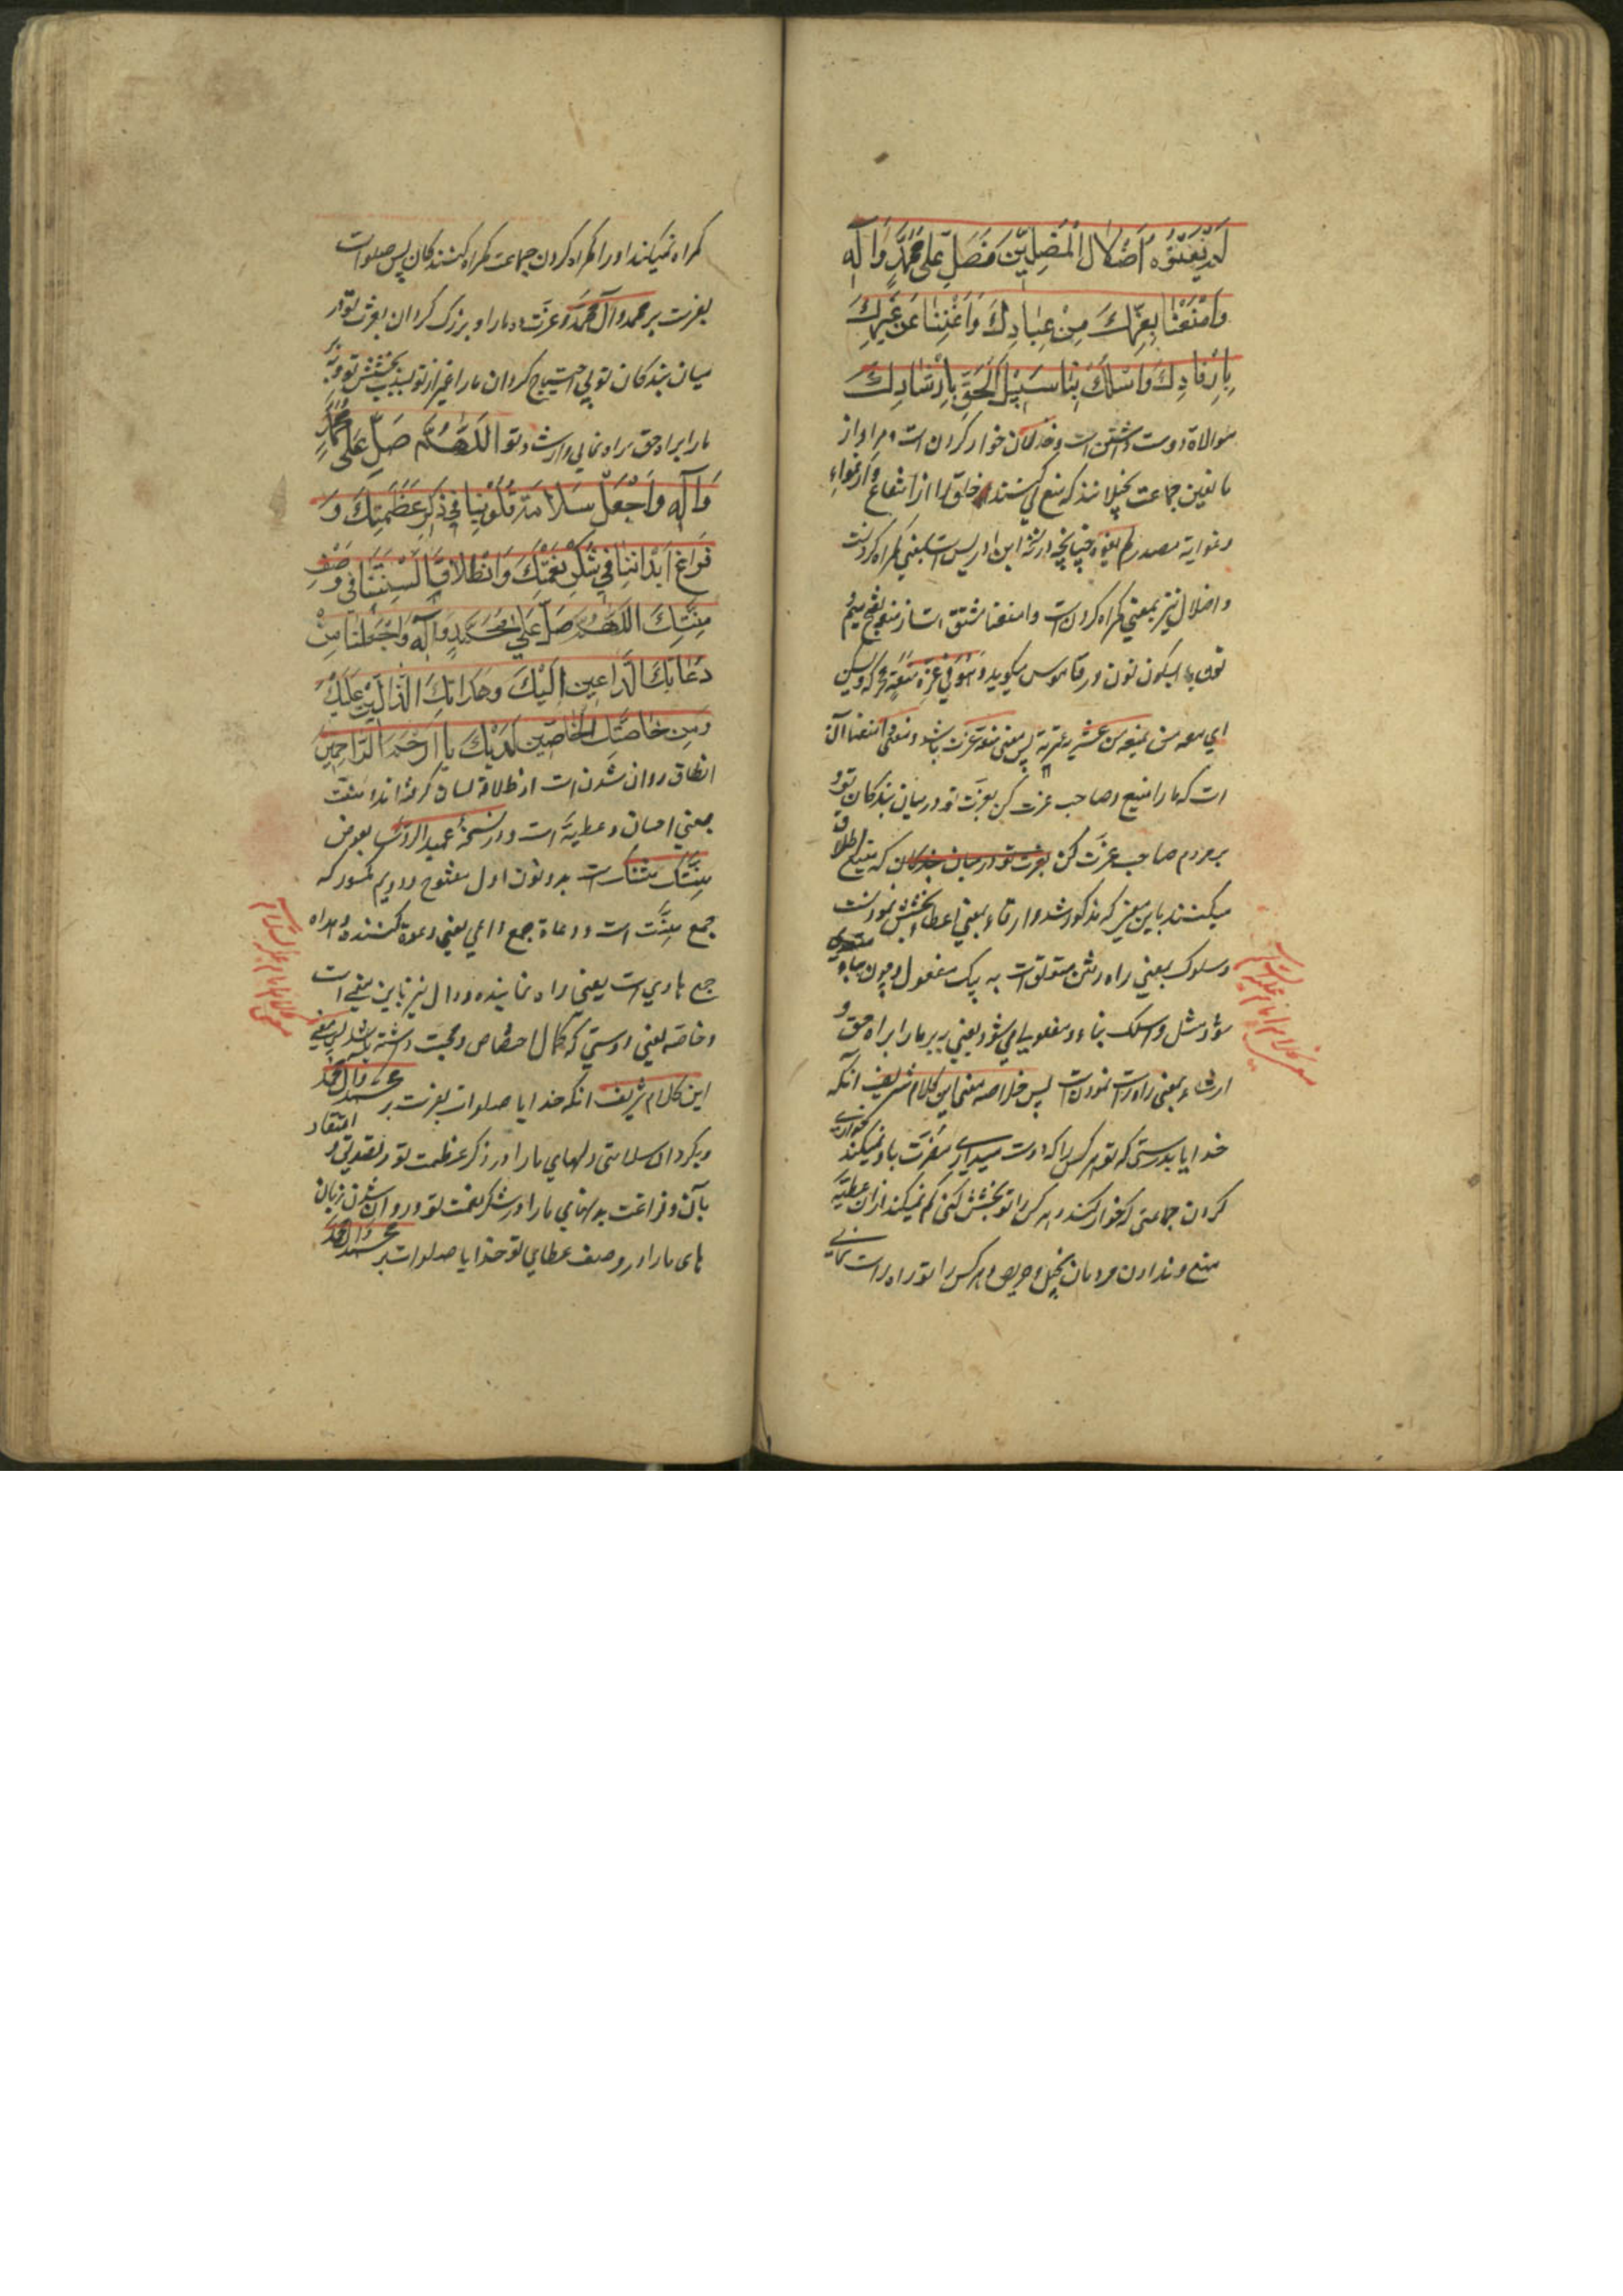 لَمْ يُغْوِهِ اضْلَالُ الْمُضِلِّينَ فَصَلِّ عَلَى مُحَمَّدٍ وَآلِهِ
وَامْنَعْنَا بِعِزِّكَ مِنْ عِبَادِكَ وَاَغْنِنَا عَنْ غَيْرِكَ
بِاِرْفَادِكَ وَاسْلُكْ بِنَا سَبِيلَ الْحَقِّ بِاِرْشَادِكَ
موالاة دوست داشتن است وخذلان خوار کردن است و مراد از
مانعین جماعت بخیلانند که منع می کنند خلق را از انتفاع واغواء
وغوایة مصدر لم یغوه چنانچه در نسخه ابن ادریس است بمعنی کمراه کردنست
واضلال نیز بمعنی کمراه کردن است وامنعنا مشتق است از منعه بفتح میم و
نون یا بسکون نون در قاموس میکوید وهو فی عز ومنعة محرکه ویسکن
ای معه من یمنعه من عشیرته پس معنی منعه عزت باشد ومعنی امنعنا آن
است که ما را منیع وصاحب عزت کن بعزت تو در میان بندکان تو و
بر مردم صاحب عزت کن بعزت تو در میان بندکان که منیع اطلاق
میکنند باین معنی که مذکور شد وارفاد بمعنی اعطا وبخشش نمودنست
وسلوک بمعنی راه رفتن متعلق است به یک مفعول وچون بباء متعدی
شود مثل واسلک بنا دو مفعول می شود یعنی ببر ما را براه حق و
ارشاد بمعنی راه راست نمودن است پس خلاصه معنی این کلام شریف آنکه
خدایا بدرستی که تو هر کس را که دوست میداری مضرت باو نمیکند خوار
کردن جماعتی که خوار کنند و هر کس را تو بخشش کنی کم نمیکند از ان عطیه
منع و ندادن مردمان بخیل وحریص وهر کس را تو راه راست نمایی
معنی کلام امام علیه السلام
کمراه نمیکند او را کمراه کردن جماعت کمراه کنندکان پس صلوات
بفرست بر محمد وآل محمد وعزت ده ما را و بزرک کردان بعزت تو در
میان بندکان تو بی احتیاج کردان ما را از غیر از تو بسبب بخشش تو وببر
ما را براه حق براه نمایی وارشاد تو اللَّهُمَّ صَلِّ عَلَى مُحَمَّدٍ
وَآلِهِ وَاجْعَلْ سَلَامَةَ قُلُوبِنَا فِي ذِكْرِ عَظَمَتِكَ وَ
فَرَاغَ اَبْدَانِنَا فِي شُكْرِ نِعْمَتِكَ وَانْطِلَاقَ اَلْسِنَتِنَا فِي وَصْفِ
مِنَّتِكَ اللَّهُمَّ صَلِّ عَلَى مُحَمَّدٍ وَآلِهِ وَاجْعَلْنَا مِنْ
دُعَاتِكَ الدَّاعِينَ اِلَيْكَ وَهُدَاتِكَ الدَّالِّينَ عَلَيْكَ
وَمِنْ خَاصَّتِكَ الْخَاصِّينَ لَدَيْكَ يَا اَرْحَمَ الرَّاحِمِينَ
انطلاق روان شدن است از طلاقة لسان کرفته اند منت
بمعنی احسان وعطیه است ودر نسخه عمید الروسا بعوض
مِنَّتِكَ مننک است بدو نون اول مفتوح ودویم مکسور که
جمع مِنَّت است ودعاة جمع داعی یعنی دعوة کننده وهداه
جمع هادی است یعنی راه نماینده ودال نیز باین معنی است
وخاصه یعنی دوستی که کمال اختصاص ومحبت داشته باشد پس معنی
این کلام شریف آنکه خدایا صلوات بفرست بر محمد وآل محمد
وبکردان سلامتی دلهای ما را در ذکر عظمت تو وتصدیق و اعتقاد
بآن وفراغت بدنهای ما را در شکر نعمت تو وروان شدن زبان
های ما را در وصف عطای تو خدایا صلوات بر محمد وال محمد
معنی کلام امام علیه السلام